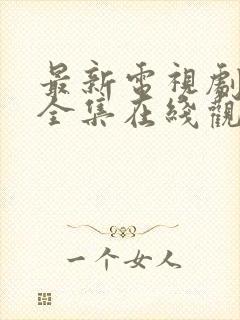 最新電視劇
全集在綫觀
一个女人